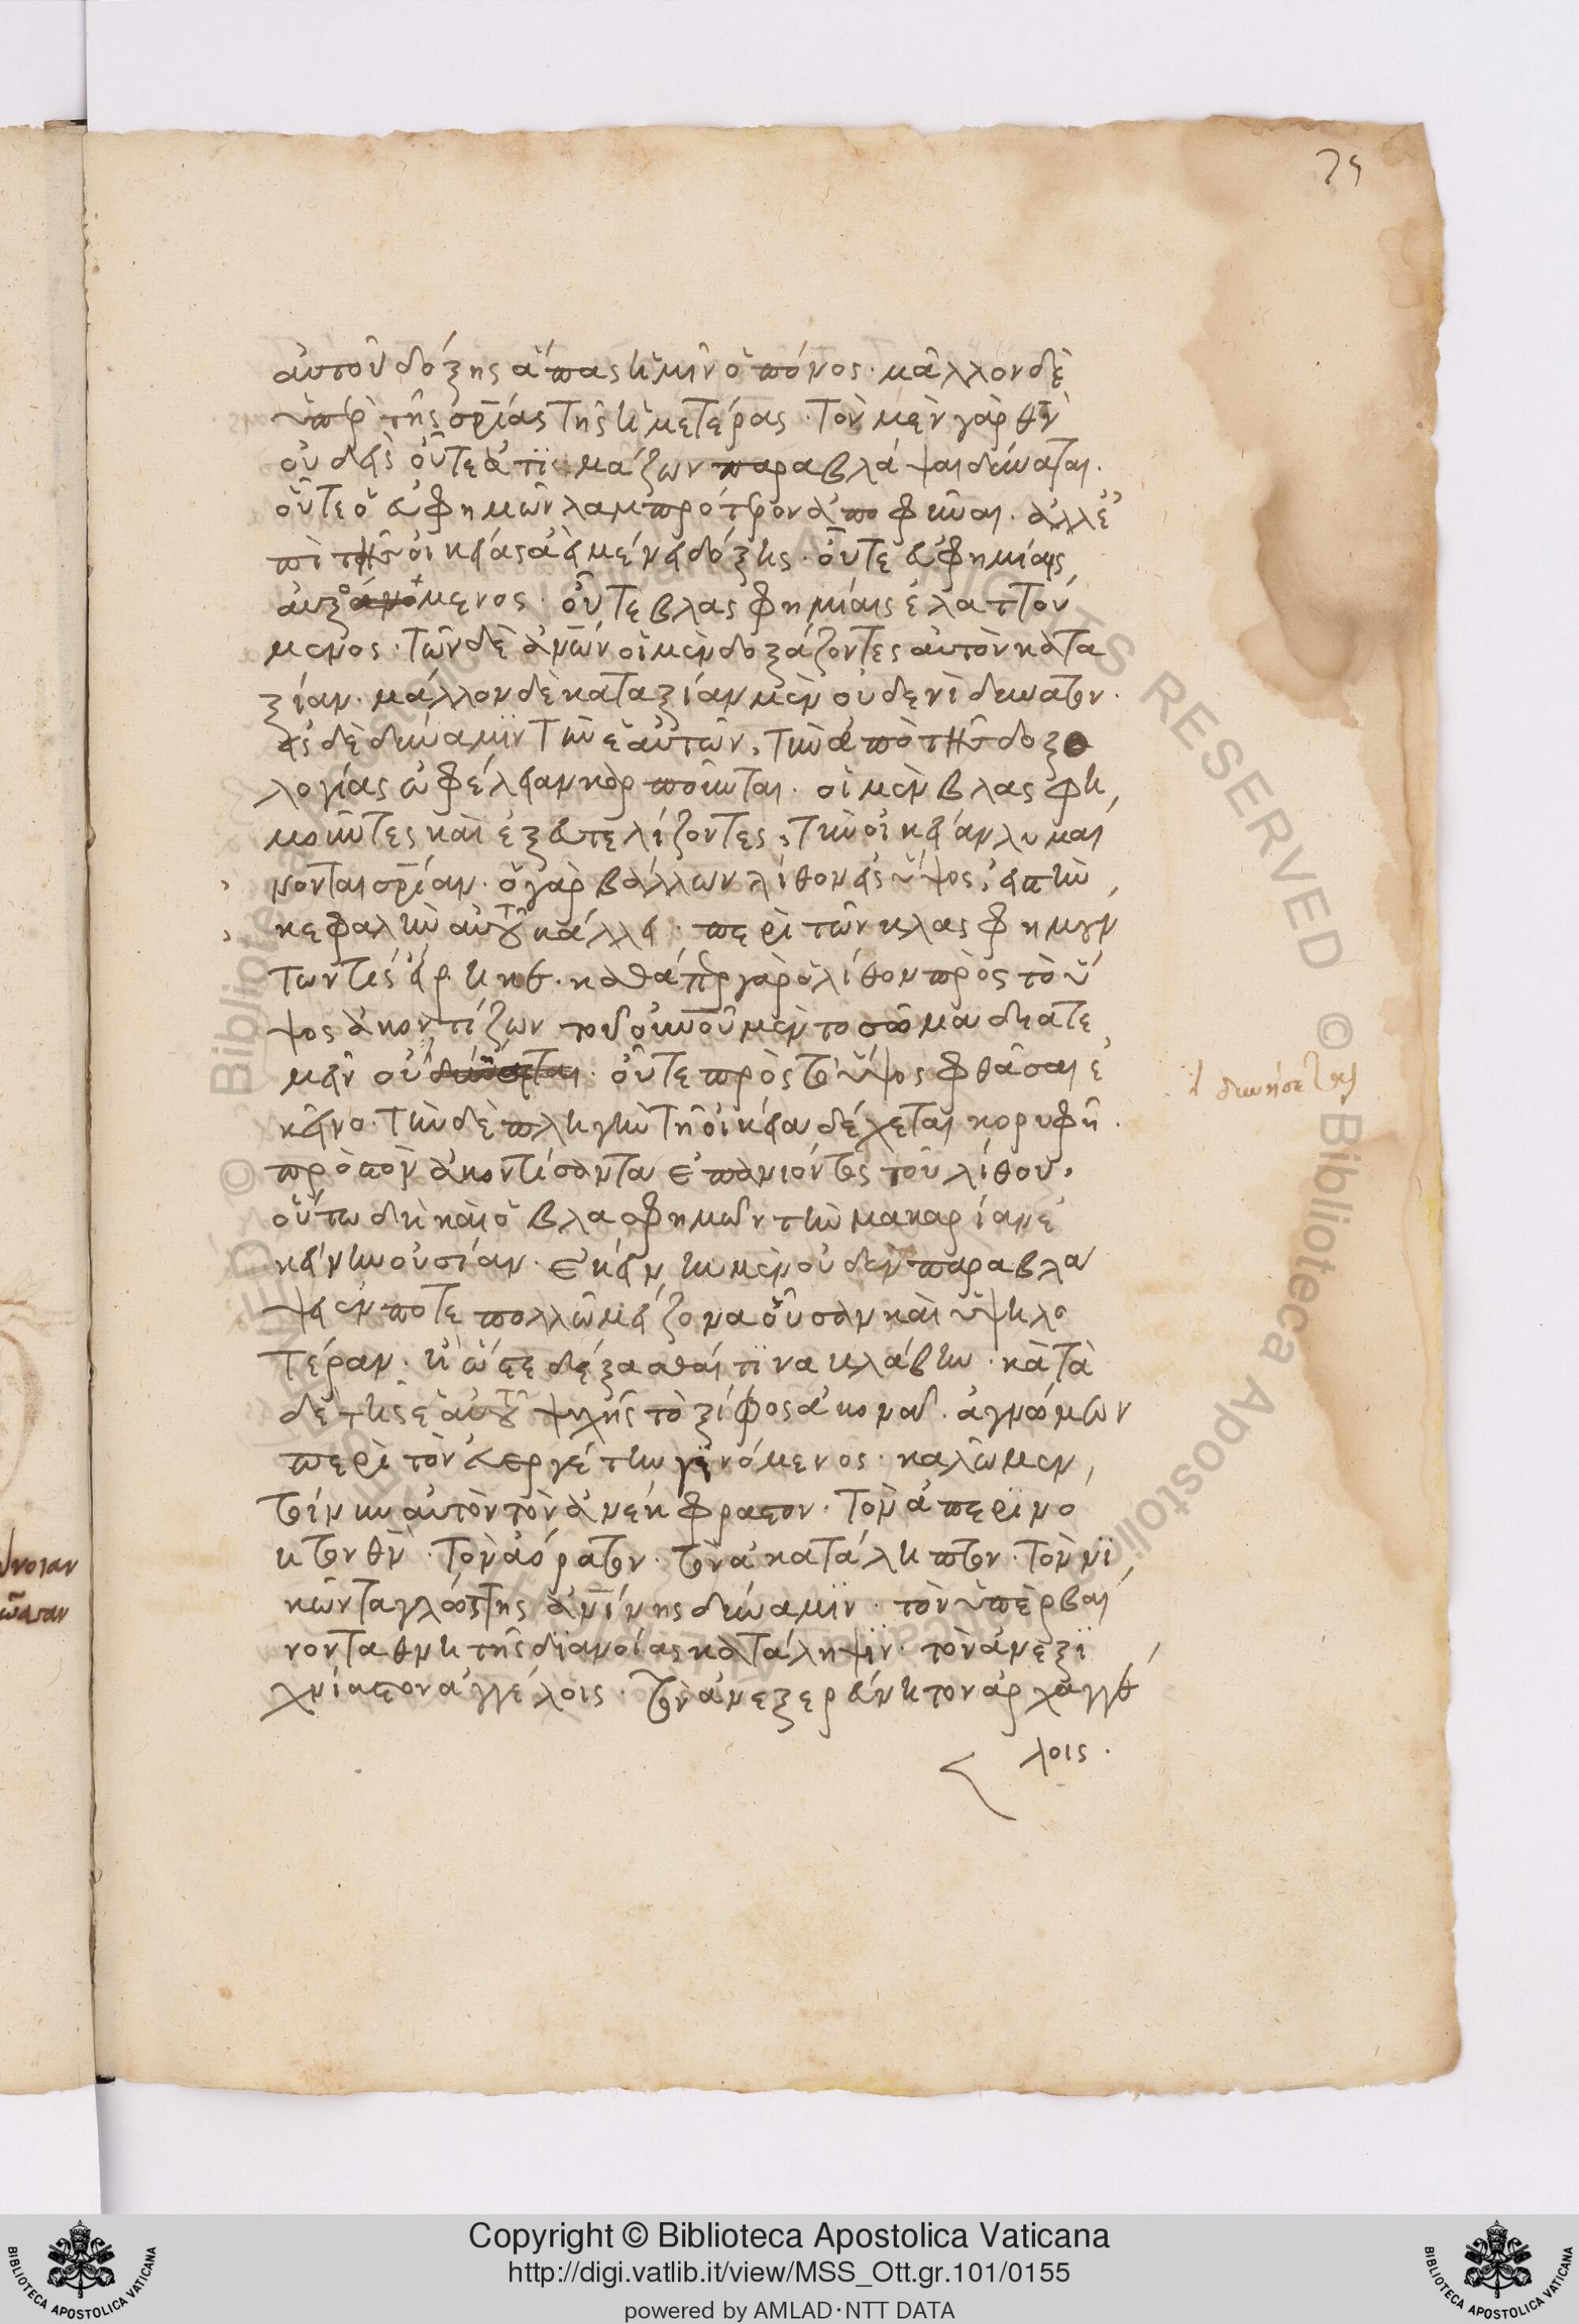 75
αὐτοῦ δόξης ἅπας ἡμῖν ὁ πόνος· μᾶλλον δὲ
ὑπὲρ τῆς σρίας τῆς ἡμετέρας· τὸν μὲν γὰρ θν
οὐδεὶς οὔτε ἀτϊμάζων παραβλάψαι δύναται·
οὔτε ὁ εὐφημῶν λαμπρότερον ἀποφῆναι· ἀλλ' ἐ
πὶ τῆς οἰκείας ἀεὶ μένει δόξης· οὔτε εὐφημίαις
αὐξόμενος· οὔτε βλασφημίαις ἐλαττού
μενος· τῶν δὲ ἀνων οἱ μὲν δοξάζοντες αὐτὸν κατα
ξίαν· μᾶλλον δὲ καταξίαν μὲν οὐδενὶ δυνατόν·
εἰς δὲ δύναμϊν τὴν ἑαυτῶν, τὴν ἀπὸ τῆς δοξο
λογίας ὠφέλειαν καρποῦνται· οἱ μὲν βλασφη
μοῦντες καὶ ἐξευτελίζοντες, τὴν οἰκείαν λυμαί
νονται σρίαν· ὁ γὰρ βάλλων λίθον εἰς ὕψος, ἐπ τὴν
κεφαλὴν αὐτοῦ βάλλει· περὶ τῶν βλασφημούν
των τις εἴρηκε· καθάπερ γὰρ ὁ λίθον πρὸς τὸ ὕ
ψος ἀκοντίζων τοῦ οὐνοῦ μὲν το σῶμα διατε
μεῖν οὐ δυνήσεται· οὔτε πρὸς τὸ ὕψος φθάσαι ἐ
κεῖνο· τὴν δὲ πληγὴν τῆ οἰκεία δέχεται κορυφῆ·
πρὸς τὸν ἀκοντίσαντα ἐπανιόντος τοῦ λίθου,
οὕτω δὴ καὶ ὁ βλασφημῶν τὴν μακαρίαν ἐ
κείνην οὐσίαν· ἐκείνην μὲν οὐδὲν παραβλά
ψειέν ποτε πολλῶ μείζονα οὖσαν καὶ ὑψηλο
τέραν· ἢ ὥστε δέξασθαί τϊνα βλάβην· κατὰ
δὲ τῆς ἑαυτοῦ ψυχῆς τὸ ξίφος ἀκονᾶ· ἀγνώμων
περὶ τὸν εὐεργέτην γϊνόμενος· καλῶμεν
τοίνυν αὐτὸν τὸν ἀνέκφραστον· τὸν ἀπερϊνό
ητον θν· τὸν ἀόρατον· τὸν ἀκατάληπτον· τὸν νϊ
κῶντα γλώττης ἀνίνης δύναμϊν· τὸν ὑπερβαί
νοντα θνη τῆς δϊανοίας κατάληψϊν· τὸν ἀνεξϊ
χνίαστον ἀγγέλοις· τὸν ἀνεξερεύνητον ἀρχαγγέ
λοις·
δυνήσεται